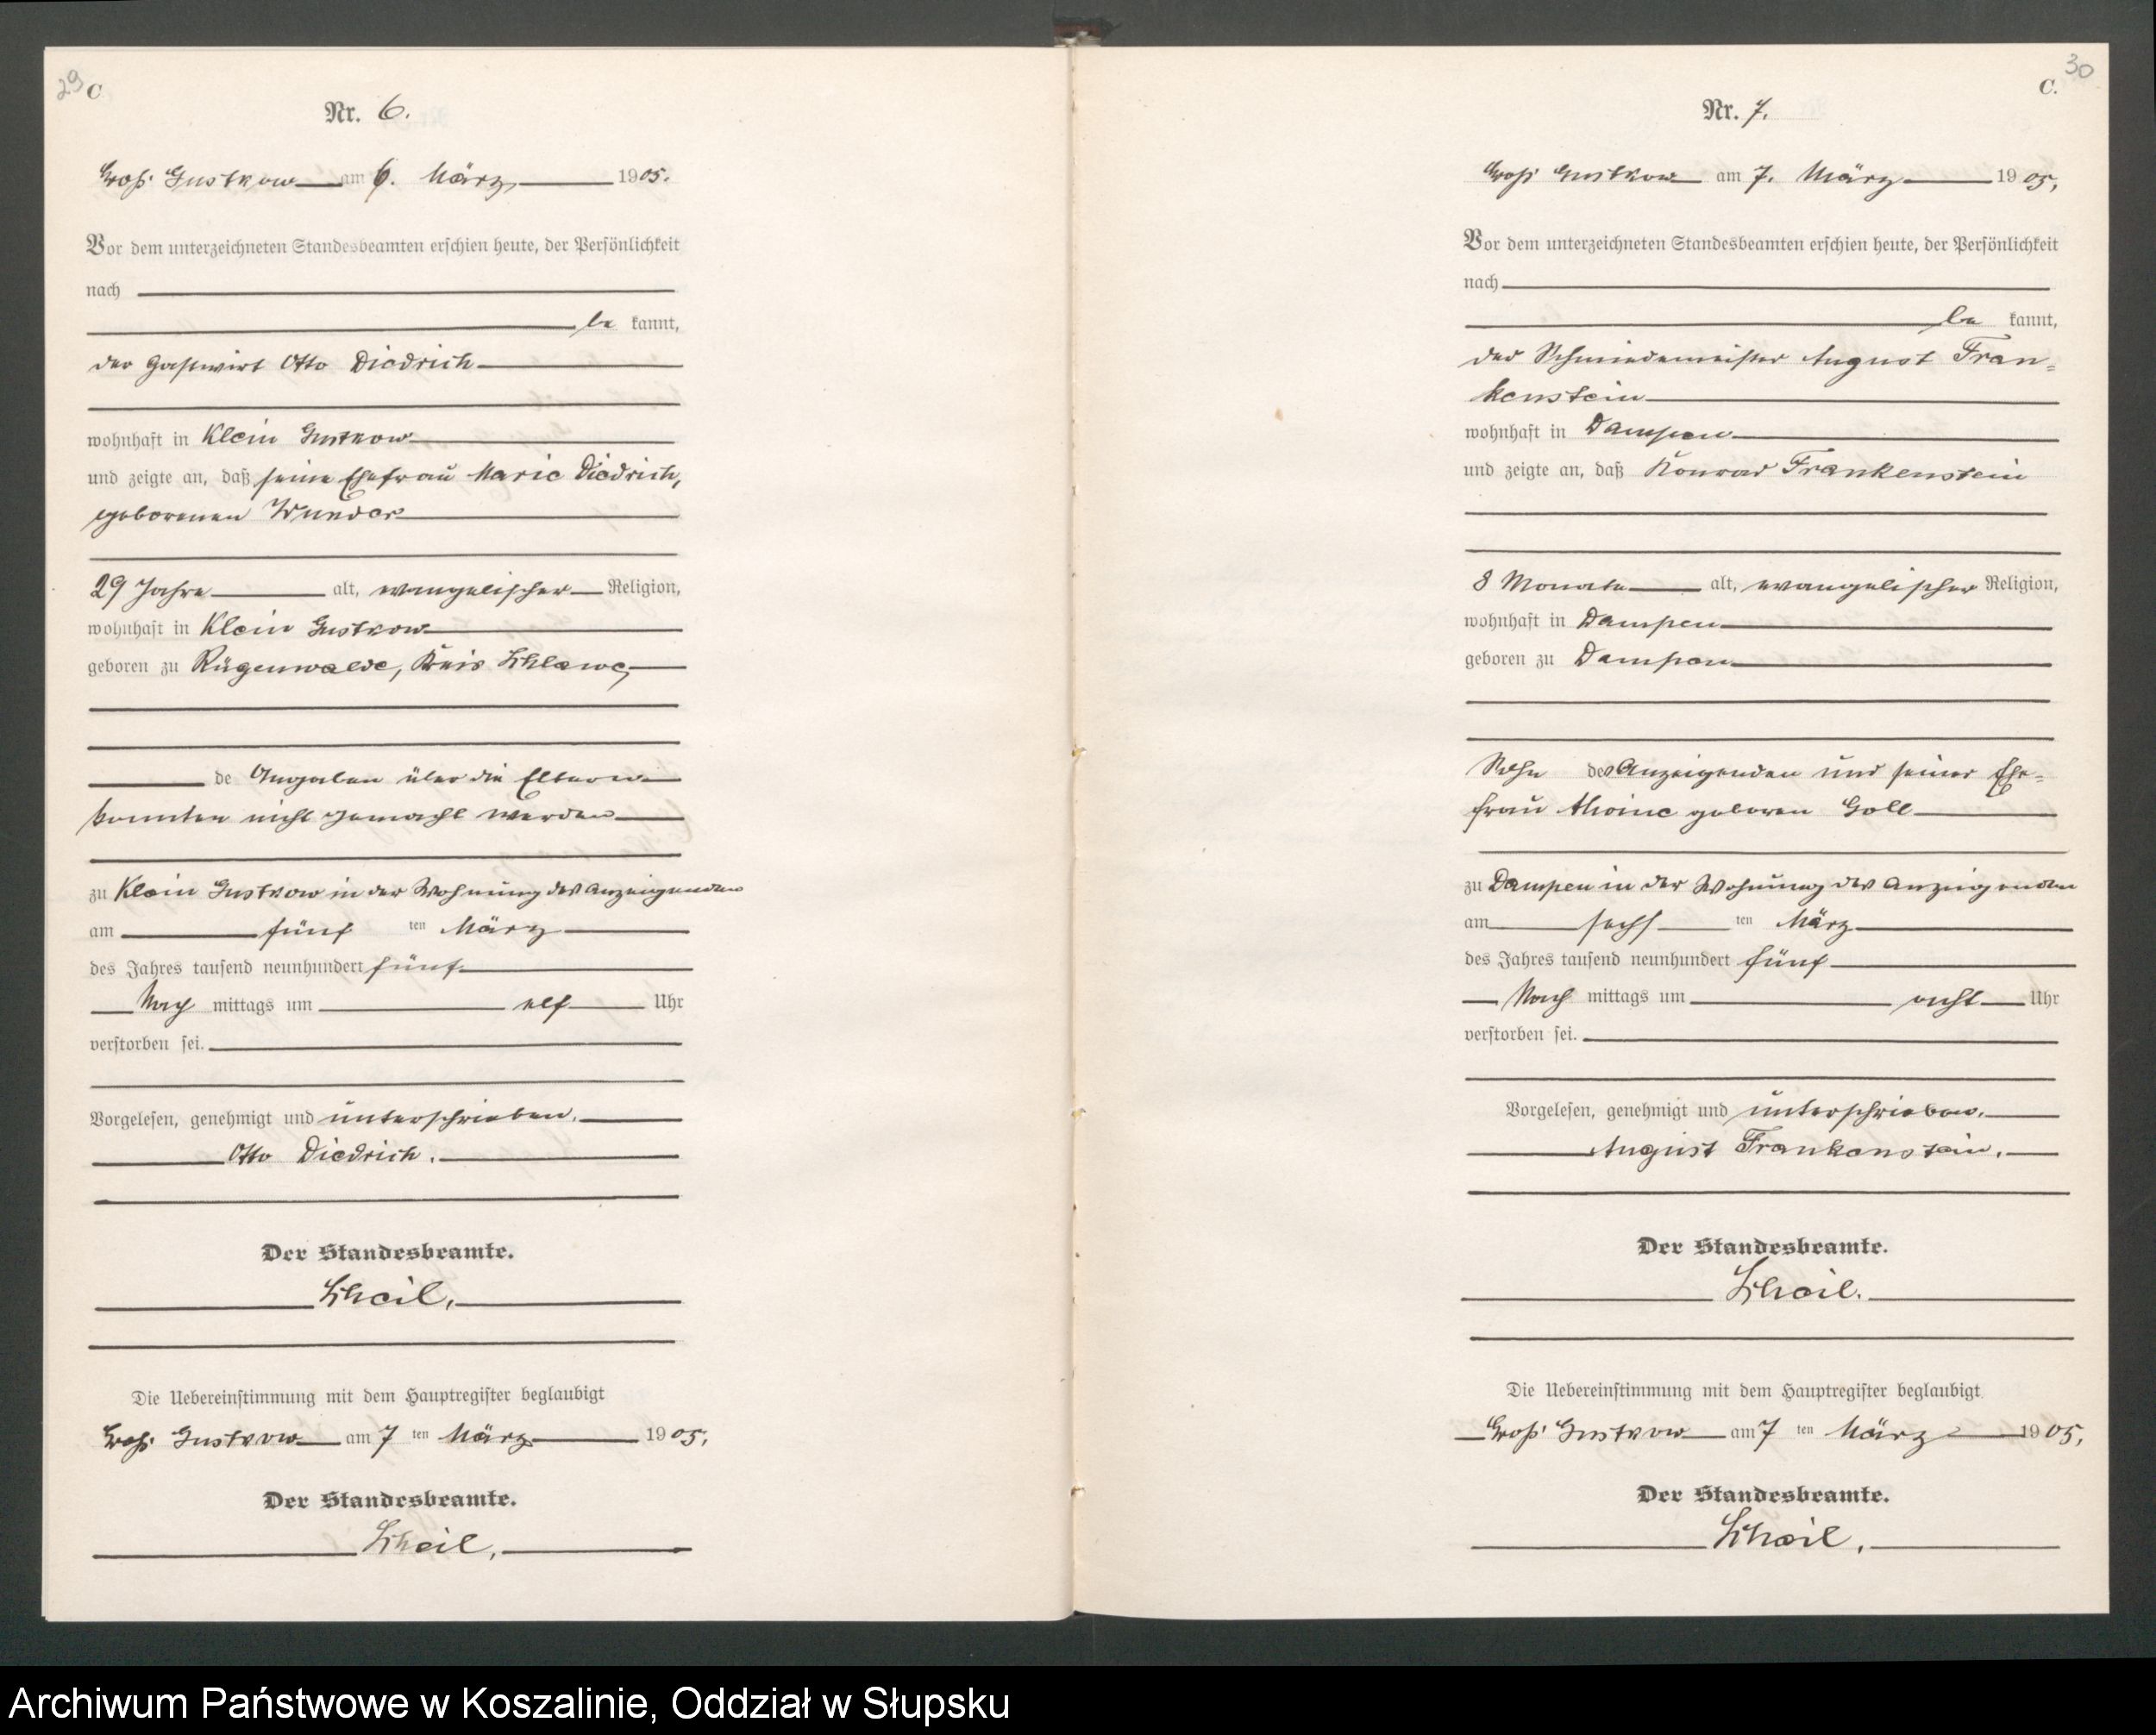 29 C
Nr. 6.
Groß Gustkow am 6. März 1905.
Vor dem unterzeichneten Standesbeamten erschien heute, der Persönlichkeit
nach
be kannt,
der Gastwirt Otto Diedrich
wohnhaft in Klein Gustkow
und zeigte an, daß seine Ehefrau Marie Diedrich,
geborenen Wunder
29 Jahre alt, evangelischer Religion,
wohnhaft in Klein Gustkow
geboren zu Rügenwalde, Kreis Schlawe,
de Angaben über die Eltern
konnten nicht gemacht werden
zu Klein Gustkow in der Wohnung des Anzeigenden
am fünf ten März
des Jahres tausend neunhundert fünf
Nach mittags um elf Uhr
verstorben sei.
Vorgelesen, genehmigt und unterschrieben.
Otto Diedrich.
Der Standesbeamte.
Scheil.
Die Uebereinstimmung mit dem Hauptregister beglaubigt
Groß Gustkow am 7 ten März 1905,
Der Standesbeamte.
Scheil.
30
C.
Nr. 7.
Groß Gustkow am 7. März 1905,
Vor dem unterzeichneten Standesbeamten erschien heute, der Persönlichkeit
nach
be kannt,
der Schmiedemeister August Fran=
kenstein
wohnhaft in Dampen
und zeigte an, daß Konrad Frankenstein
8 Monate alt, evangelischer Religion,
wohnhaft in Dampen
geboren zu Dampen
Sohn des Anzeigenden und seiner Ehe=
frau geboren Goll
zu Dampen in der Wohnung des Anzeigenden
am sechs ten März
des Jahres tausend neunhundert fünf
Nach mittags um acht Uhr
verstorben sei.
Vorgelesen, genehmigt und unterschrieben.
August Frankenstein.
Der Standesbeamte.
Scheil.
Die Uebereinstimmung mit dem Hauptregister beglaubigt
Groß Gustkow am 7 ten März 1905,
Der Standesbeamte.
Scheil.
Archiwum Państwowe w Koszalinie, Oddział w Słupsku